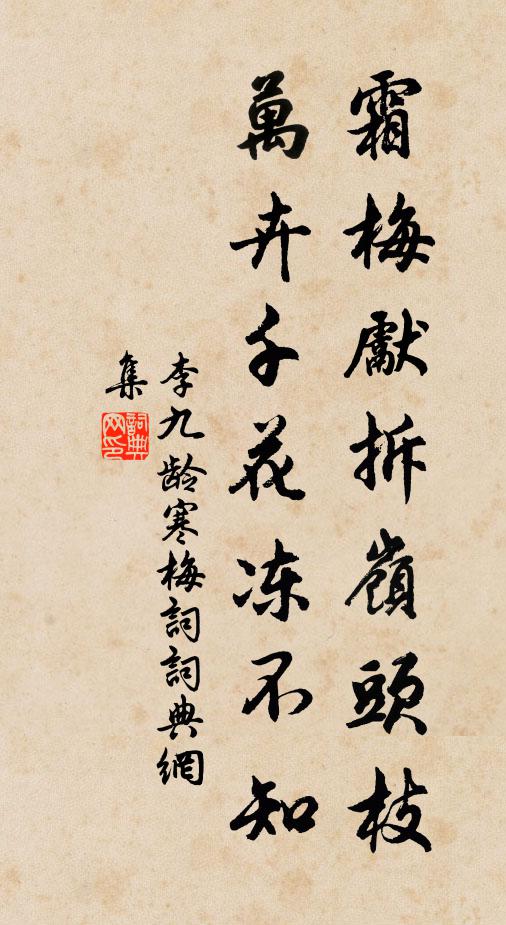 霜梅獻拆嶺頭枝
萬卉千花冻不知
李九龄寒梅詞詞典網
集
詞典网印